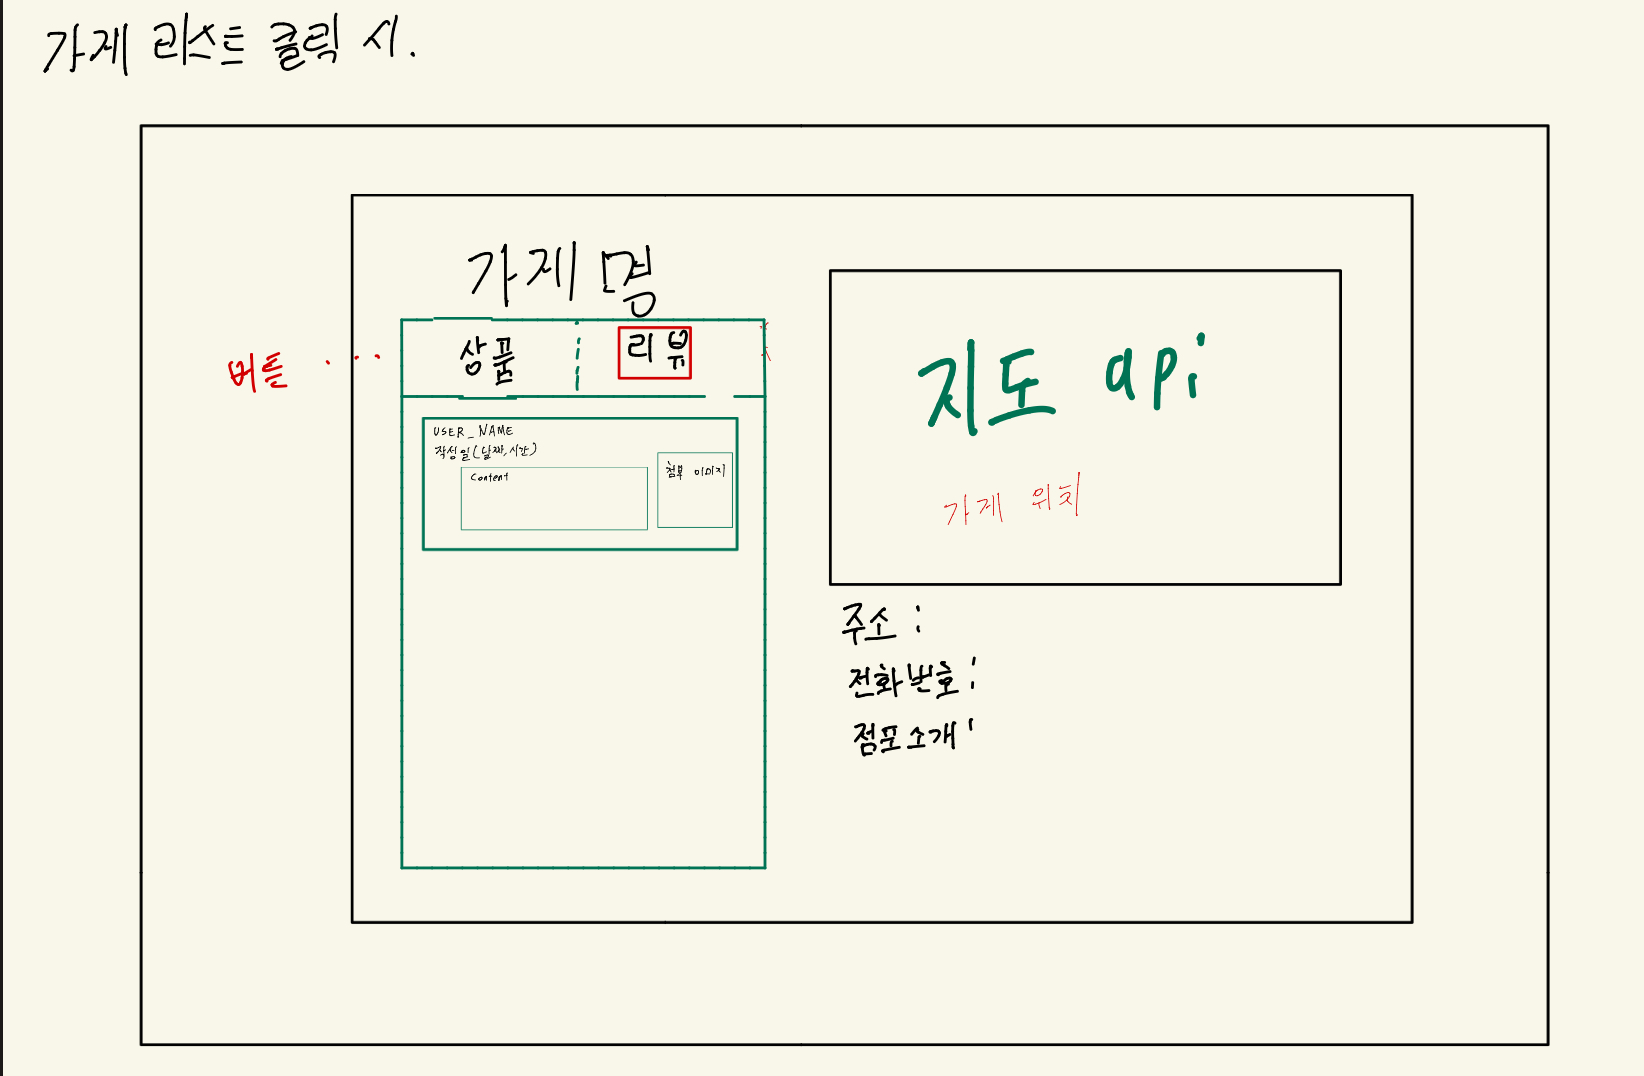 가게 리스트 클릭 시.
가게 명
버튼 ...
상품
리뷰
USER_NAME
작성일(날짜,시간)
Content
첨부 이미지
지도 api
가게 위치
주소 :
전화번호 :
점포소개 :